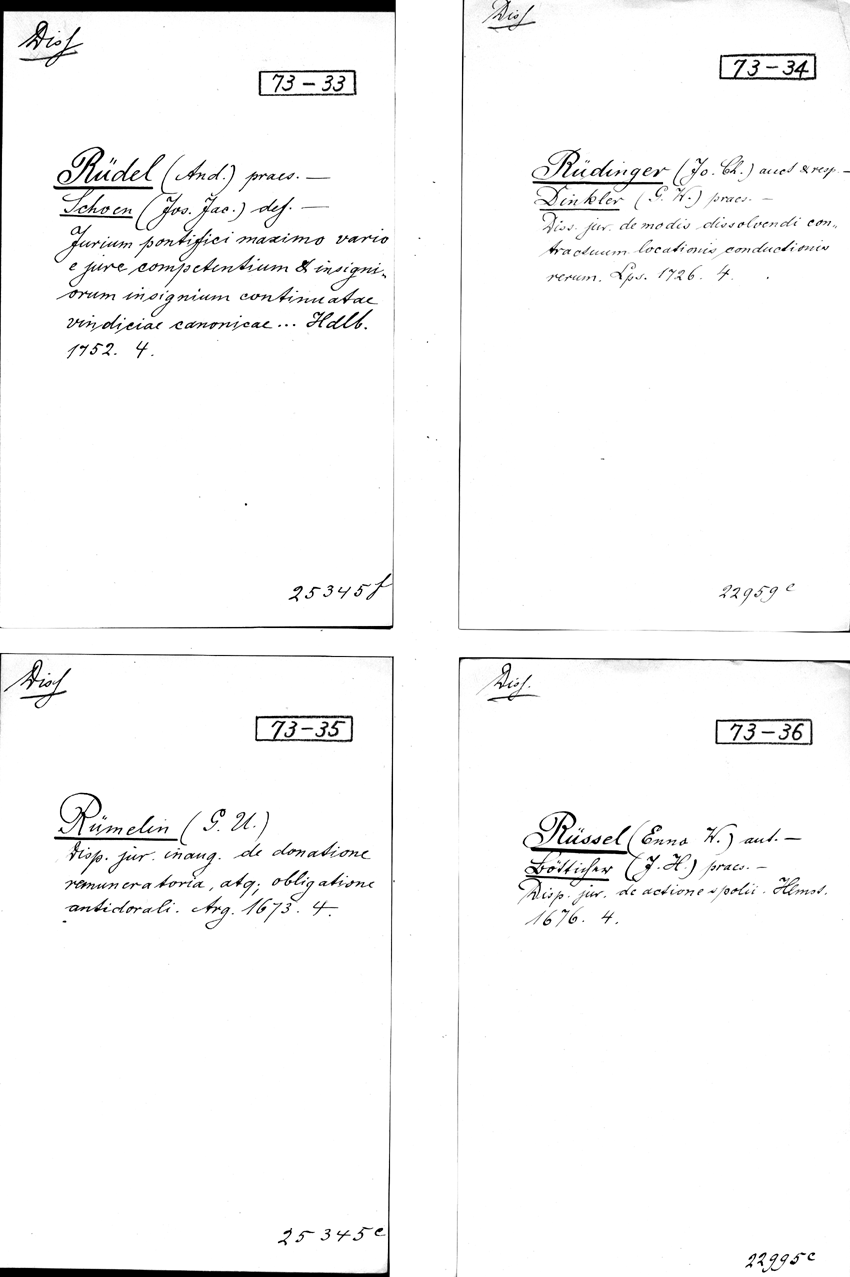 Diss
73-33
Rüdel (And.) praes. —
Schoen (Jos. Jac.) def. —
Jurium pontifici maximo vario
e jure competentium & insigni-
orum insignium continuatae
vindiciae canonicae ... Hdlb.
1752. 4.
25345f
Diss
73-34
Rüdinger (Jo. Ch.) auct & resp. —
Dinkler (G. W.) praes. —
Diss. jur. de modis dissolvendi con-
tractuum locationis conductionis
rerum. Lps. 1726. 4.
22959c
Diss
73-35
Rümelin (G. U.)
Disp. jur. inaug. de donatione
remuneratoria, atq; obligatione
antidorali. Arg. 1673. 4.
25345c
Diss.
73-36
Rüssel (Enno W.) aut. —
Bötticher (J. H.) praes. —
Disp. jur. de actione spolii. Hlmst.
1676. 4.
22995c